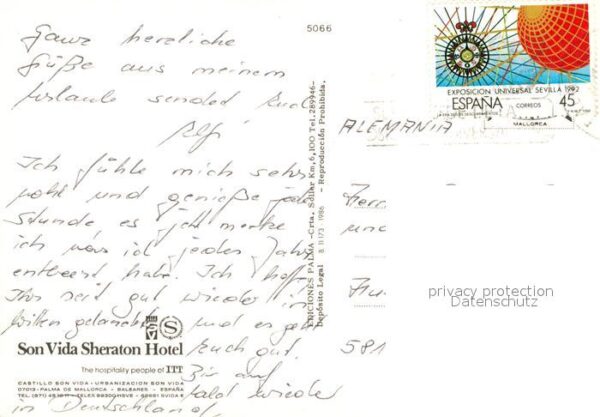 5066
Ganz herzliche
Grüße aus meinem
Urlaube sendet Euch
Ich fühle mich sehr
wohl und genieße jede
Stunde, es ich merke
ich was ich jedes Jahr
entbeert habe. Ich hoffe
Ihr seid gut wieder in
gelandet und es geht
Euch gut.
Bis auf
bald wieder
in Deutschland
Son Vida Sheraton Hotel
The hospitality people of ITT
CASTILLO SON VIDA - URBANIZACION SON VIDA
07013 - PALMA DE MALLORCA - BALEARES - ESPAÑA
EDICIONES PALMA - Crta. Sóller Km, 6,100 Tel. 289946 -
Depósito Legal B. 11173 - 1986 - Reproducción Prohibida.
EXPOSICION UNIVERSAL SEVILLA 1992
ESPAÑA
CORREOS
45
MALLORCA
ALEMANIA
und
581
privacy protection
Datenschutz